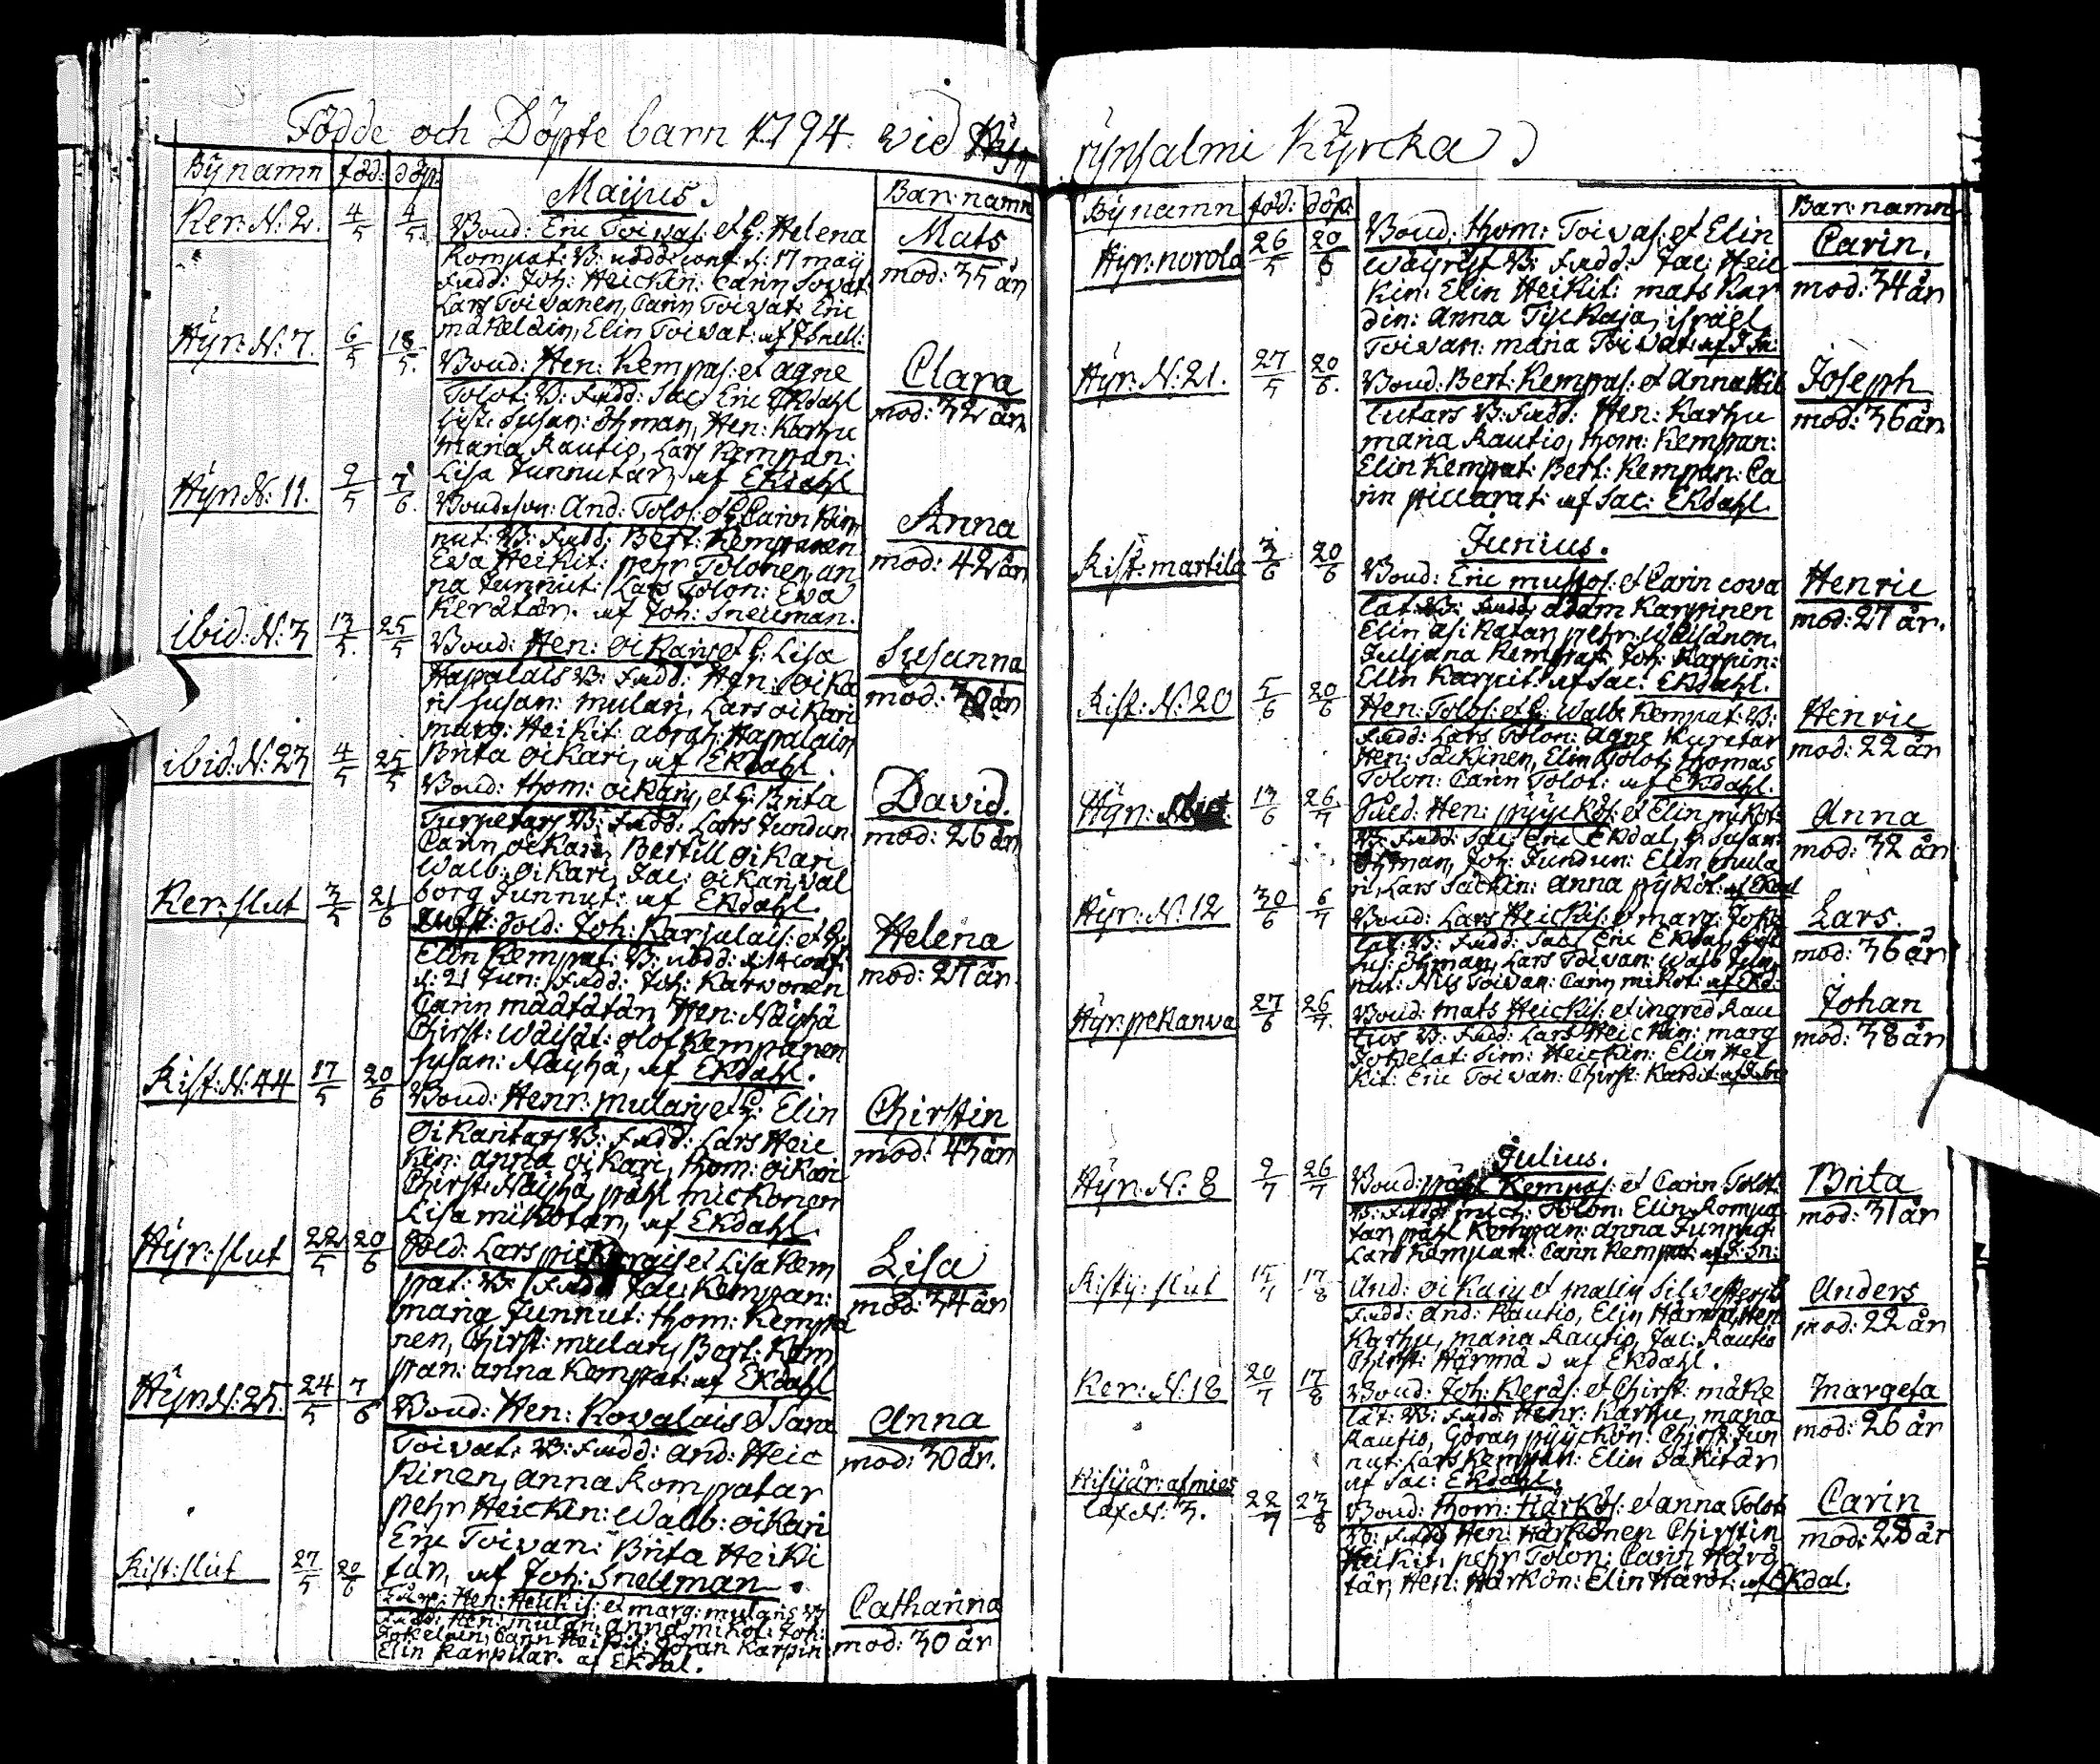 Födde och Döpte barn 1794. vid Hyr
Bynamn föd: döp: Bar: namn
Majus.
Ker: N: 2. 4/5 4/5
Boud: Eric Toivas: et h: Helena
Kompat: B: nöddöp conf. d: 17 maij
fadd: Joh: Heickin: Carin Tovat:
Lars Toivanen, Carin Toivat: Eric
mäkeläin, Elin Toivat: af J Snell:
Mats
mod: 35 år
Hyr: N: 7. 6/5 18/5.
Boud: Hen: Kempas: et agne
Tolot: B: fadd: Sac: Eric Ekdahl
Susan: Öhman, Hen: Karhu
Maria Rautio, Lars Kempan:
Lisa Junnutar, af Ekdahl
Clara
mod: 32 år.
Hyr N: 11. 9/5 7/6.
Boudeson: And: Tolos: et h Carin Kim
nut: B: fadd: Bert: Kempainen
Eva Heikit: pehr Tolonen, an
na Junnut: Lars Tolon: Eva
Kerätär. af Joh: Snellman.
Anna
mod: 42 år
ibid: N: 3 13/5. 25/5
Boud: Hen: oikaris et h: Lisa
Hapalais B: fadd: Hen: oika
ri Susan: mulari, Lars oikari
marg: Heikit: abrah: Hapalain
Brita oikari, af Ekdahl.
Susanna
mod: 30 år
ibid: N: 23 4/5 25/5
Boud: thom: oikaris, et h: Brita
Turpetars B: fadd: Lars Jundun
Carin oikari, Bertill oikari
Walb: oikari, Jac: oikari, wal
borg Junnut: af Ekdahl.
David.
mod: 26 år
Ker: slut 3/5 21/6
Sold: Joh: Karjulais: et h:
Elin Kempat: B: nödd: d: 14 conf:
d: 21 Jun: fadd: Joh: Karvonen
Carin määtätär, Hen: Näyhä
Chirst: Wäisät: olof Kempainen
Susan: Näyhä, af Ekdahl.
Helena
mod: 27 år.
Kist: N: 44 17/5 20/6
Boud: Henr: mularis et h: Elin
oikaritars B: fadd: Lars Heic
kin: anna oikari, thom: oikari
Chirst: Näyhä, påhl mickonen
Lisa mikotar, af Ekdahl.
Chirstin
mod: 43 år
Hyr: slut 22/5 20/6
Sold: Lars et Lisa Kem
pat: B: fadd: Jac: Kempan:
maria Junnut: thom: Kempa
nen, Chirst: mulari, Bert: Kem
pan: anna Kempat: af Ekdahl
Lisa
mod: 34 år
Hyr N: 25. 24/5 7/6
Boud: Hen: Kovalais et Sara
Toivat: B: fadd: and: Heic
Kinen, anna Kompatar
pehr Heickin: Walb: oikari
Eric Toivan: Brita Heiki
tär, af Joh: Snellman.
Anna
mod: 30 år.
Kist: slut 27/5 20/6
Hen: Heickis: et marg: mularis B
fadd: Hen: mulari, anna mikot: Joh:
Jokelain, Carin Heikit: Göran Karpin
Elin Karpitar. af Ekdal.
Catharina
mod: 30 år
rynsalmi Kyrcka
Bynamn föd: döp: Bar: namn
Hyr: norola 26/5 20/6
Boud: thom: Toivas: et Elin
Wäyryst B: fadd: Jac: Heic
kin: Elin Heikit: mats Kar
din: Anna Tyckäjä, israel
Toivan: maria Toivat: af J Sn:
Carin.
mod: 34 år
Hyr: N: 21. 27/5 20/6.
Boud: Bert: Kempas: et Anna Kil
lutars B: fadd: Hen: Karhu
maria Rautio, thom: Kempan:
Elin Kempat: Bert: Kempan: Ca
rin pillarat: af Sac: Ekdahl.
Joseph
mod: 36 år.
Junius.
Kist: martila 3/6 20/6
Boud: Eric mustos: et Carin Cova
lat: B: fadd: adam Karppinen
Elin asikatar, pehr
Juljana Kempat: Joh: Karpin:
Elin Karpit: af Sac: Ekdahl.
Henric
mod: 27 år.
Kist: N: 20 5/6 20/6
Hen: Tolos: et h: Walb: Kempat: B:
fadd: Lars Tolon: agne Kuretar
Hen: Säckinen, Elin Tolot: thomas
Tolon: Carin Tolot: af Ekdahl.
Henric
mod: 22 år
Hyr: 13/6 26/7
Hen: pyyckös: et Elin mikot:
B: fadd: Sac: Eric Ekdal, h: Susan:
Öhman, Joh: Jundun: Elin mula
ri, Lars Säckin: anna pyköt: af Ekdal
Anna
mod: 32 år
Hyr: N: 12 30/6 6/7
Boud: Lars Heickis: et marg: Joke
lat: B: fadd: Sac: Eric Ekdal,
Sus: Öhman, Lars Toivan: Walb Jun
nut: Nils Toivan: Carin mikot: af Ekd:
Lars.
mod: 36 år
Hyr: pekanva 27/6 26/7.
Boud: mats Heickis: et ingred Rau
tios B: fadd: Lars Heickin: marg
Jokelat: Sim: Heickin: Elin Hei
kit: Eric Toivan: Chirst: Kardit: af J Sn
Johan
mod: 38 år
Julius.
Hyr: N: 8 9/7 26/7
Boud: påhl Kempas: et Carin Tolot:
B: fadd: mich: Tolon: Elin Kompa
tar, påhl Kempan: anna Junnut:
Lars Kempan: Carin Kempat: af J: Sn:
Brita
mod: 31 år
Kisty: slut 15/7 17/8
And: oikaris et malin Silvesters B
fadd: and: Rautio, Elin Härmä, Hen
Karhu, maria Rautio, Jac: Rautio
Chirst: Härmä. af Ekdahl.
Anders
mod: 22 år
Ker: N: 18 20/7 17/8
Boud: Joh: Keräs: et Chirst: mäke
lät: B: fadd: Henr: Karhu, maria
Rautio, Göran pyyckön: Chirst: Jun
nut: Lars Kempan: Elin Säkitär
af Sac: Ekdahl.
Margeta
mod: 26 år
22/7 23/8
lax N: 3.
Boud: thom: Härkös: et anna Tolot
B: fadd: Hen: Härkönen Chirstin
Heikit, pehr Tolon: Carin Härö
tär, Hen: Härkön: Elin Häröt: af Ekdal.
Carin
mod: 28 år